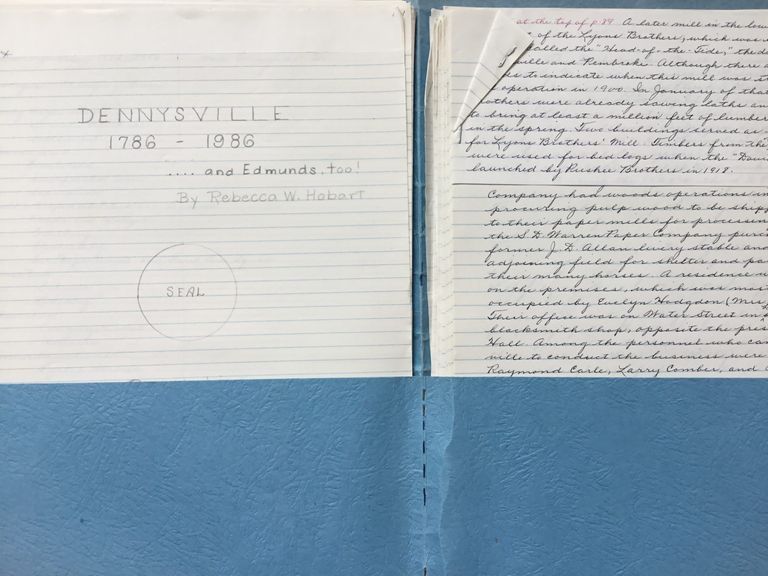 DENNYSVILLE
1786 - 1986
.... and Edmunds, too!
By Rebecca W. Hobart
SEAL
at the top of p. 89. A later mill in the low
of the Lyons Brothers, which was
called the "Head-of-the-Tide," the d
ville and Pembroke. Although there a
to indicate when this mill was st
operation in 1900. In January of that
others were already sawing laths an
to bring at least a million feet of lumber
in the spring. Two buildings served as
for Lyons Brothers' Mill. Timbers from the
were used for bed logs when the "Davi
launched by Rushee Brothers in 1918.
Company had woods operations in
procuring pulp wood to be shipp
to their paper mills for processin
the S.D. Warren Paper Company pur
former J.D. Allan livery stable and
adjoining field for shelter and pa
their many horses. A residence w
on the premises, which was most
occupied by Evelyn Hodgdon (Mrs.
Their office was on Water Street in
blacksmith shop, opposite the pres
Hall. Among the personnel who ca
ville to conduct the business were
Raymond Earle, Larry Comber, and